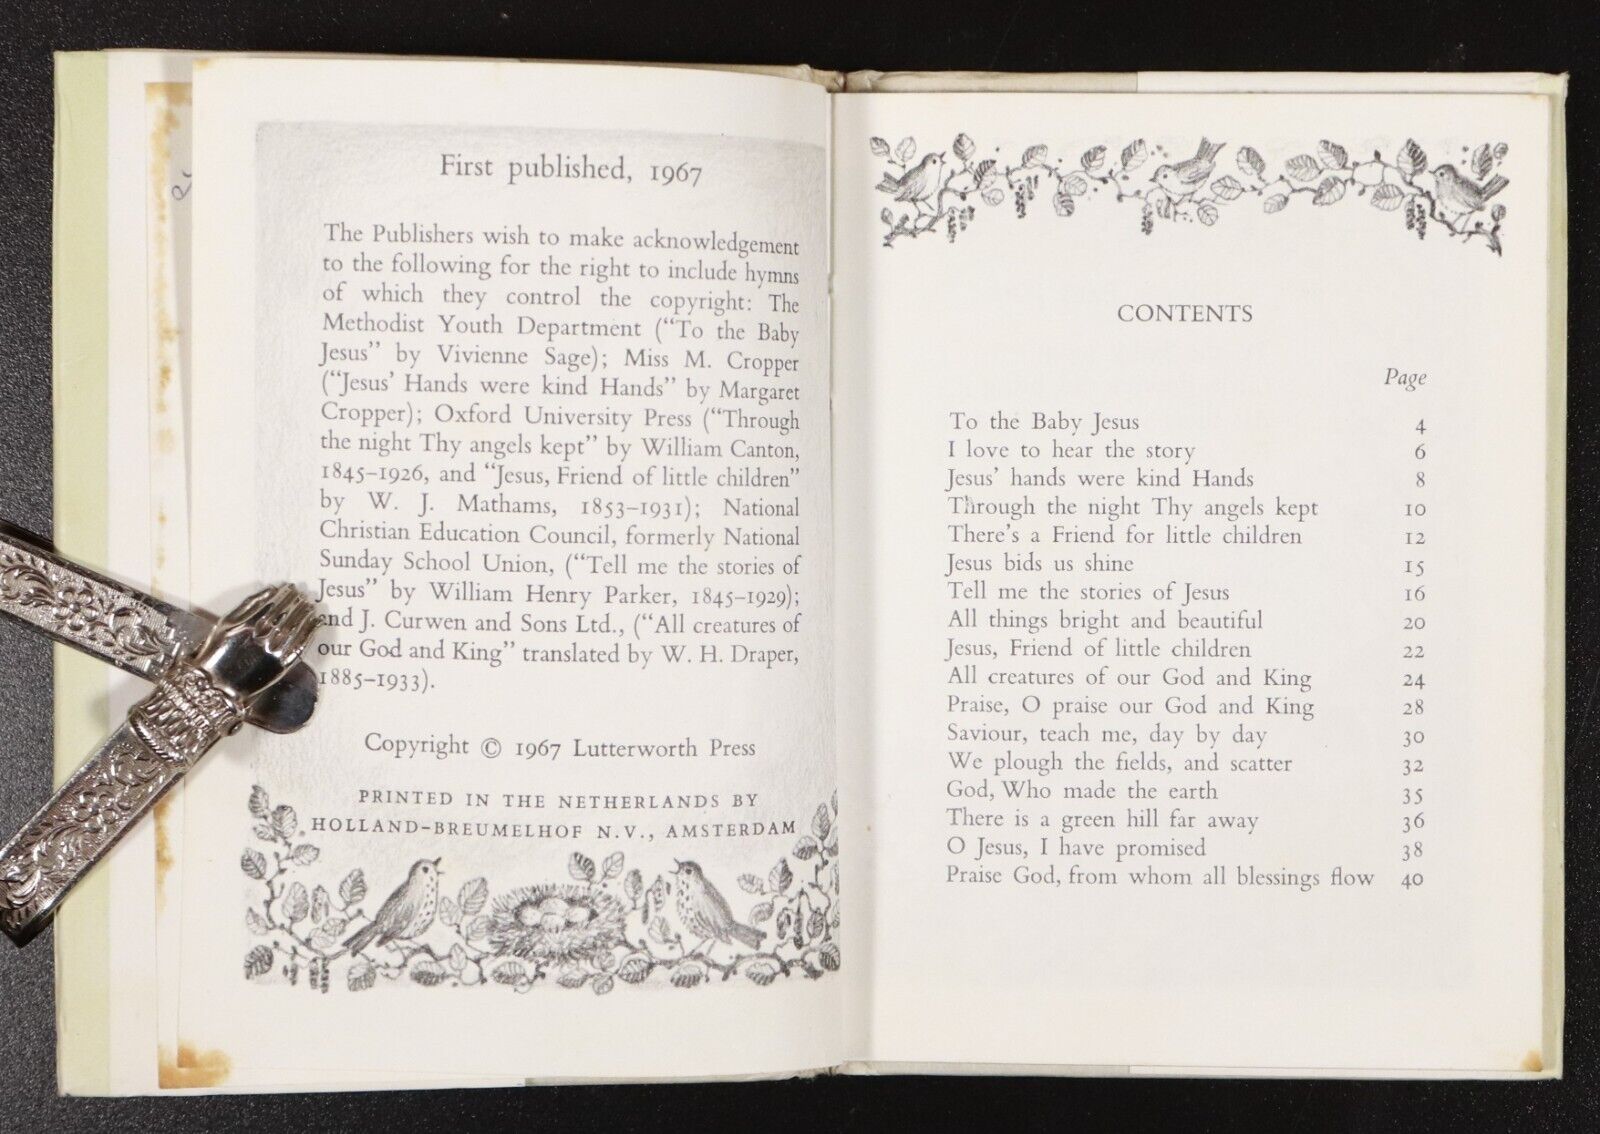 First published, 1967
The Publishers wish to make acknowledgement
to the following for the right to include hymns
of which they control the copyright: The
Methodist Youth Department (“To the Baby
Jesus” by Vivienne Sage); Miss M. Cropper
(“Jesus’ Hands were kind Hands” by Margaret
Cropper); Oxford University Press (“Through
the night Thy angels kept” by William Canton,
1845–1926, and “Jesus, Friend of little children”
by W. J. Mathams, 1853–1931); National
Christian Education Council, formerly National
Sunday School Union, (“Tell me the stories of
Jesus” by William Henry Parker, 1845–1929);
and J. Curwen and Sons Ltd., (“All creatures of
our God and King” translated by W. H. Draper,
1885–1933).
Copyright © 1967 Lutterworth Press
PRINTED IN THE NETHERLANDS BY
HOLLAND–BREUMELHOF N.V., AMSTERDAM
CONTENTS
Page
To the Baby Jesus 4
I love to hear the story 6
Jesus’ hands were kind Hands 8
Through the night Thy angels kept 10
There’s a Friend for little children 12
Jesus bids us shine 15
Tell me the stories of Jesus 16
All things bright and beautiful 20
Jesus, Friend of little children 22
All creatures of our God and King 24
Praise, O praise our God and King 28
Saviour, teach me, day by day 30
We plough the fields, and scatter 32
God, Who made the earth 35
There is a green hill far away 36
O Jesus, I have promised 38
Praise God, from whom all blessings flow 40